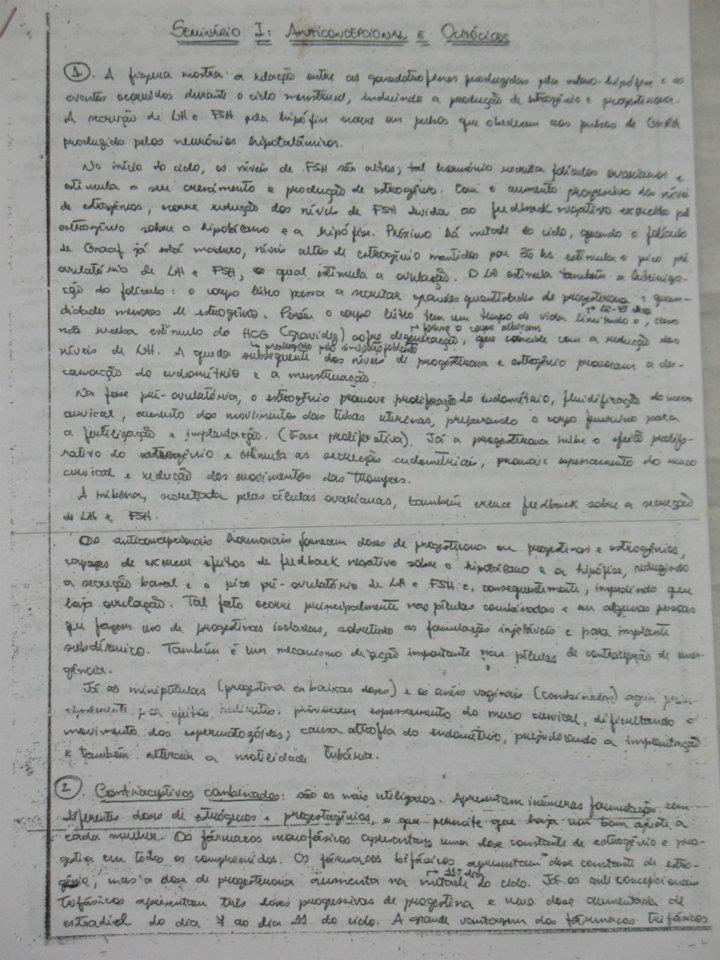 SEMINÁRIO I: ANTICONCEPCIONAL E OCITÓCICOS
1. A figura mostra a relação entre as gonadotrofinas produzidas pela adeno-hipófise e os
eventos ocorridos durante o ciclo menstrual, incluindo a produção de estrogênio e progesterona.
A secreção de LH e FSH pela hipófise ocorre em pulsos que obedecem aos pulsos de GnRH
produzido pelos neurônios hipotalâmicos.
No início do ciclo, os níveis de FSH são altos; tal hormônio recruta folículos ovarianos e
estimula o seu crescimento e produção de estrogênio. Com o aumento progressivo dos níveis
de estrogênios, ocorre redução dos níveis de FSH devido ao feedback negativo exercido pelo
estrogênio sobre o hipotálamo e a hipófise. Próximo há metade do ciclo, quando o folículo
de Graaf já está maduro, níveis altos de estrogênio mantidos por 36 hs estimula o pico pré
ovulatório de LH e FSH, o qual estimula a ovulação. O LH estimula também a luteiniza-
ção do folículo: o corpo lúteo passa a secretar grandes quantidades de progesterona e quan-
tidades menores de estrogênio. Porém o corpo lúteo tem um tempo de vida limitado e, caso
não receba estímulo do HCG (gravidez) sofre degeneração, que coincide com a redução dos
forma o corpo albicans
níveis de LH. A queda subsequente dos níveis de progesterona e estrogênio provocam a des-
camação do endométrio e a menstruação.
Na fase pré-ovulatória, o estrogênio promove proliferação do endométrio, fluidificação do muco
cervical, aumento dos movimentos das tubas uterinas, preparando o corpo feminino para
a fertilização e implantação. (Fase proliferativa). Já a progesterona inibe o efeito prolife-
rativo do estrogênio e estimula as secreções endometriais, promove espessamento do muco
cervical e redução dos movimentos das trompas.
A inibina, secretada pelas células ovarianas, também exerce feedback sobre a secreção
de LH e FSH.
Os anticoncepcionais hormonais fornecem doses de progesterona ou progestinas e estrogênios,
capazes de exercer efeitos de feedback negativo sobre o hipotálamo e a hipófise, reduzindo
a secreção basal e o pico pré-ovulatório de LH e FSH e, consequentemente, impedindo que
haja ovulação. Tal fato ocorre principalmente nas pílulas combinadas e em algumas pessoas
que fazem uso de progestinas isoladas, sobretudo as formulações injetáveis e para implante
subdérmico. Também é um mecanismo de ação importante nas pílulas de contracepção de emer-
gência.
Já as minipílulas (progestina em baixas doses) e os anéis vaginais (combinados) agem prin-
cipalmente por efeitos indiretos: provocam espessamento do muco cervical, dificultando o
movimento dos espermatozóides; causa atrofia do endométrio, prejudicando a implantação
e também alteram a motilidade tubária.
2. Contraceptivos combinados: são os mais utilizados. Apresentam inúmeras formulações com
diferentes doses de estrógenos e progestagênios, o que permite que haja um bom ajuste a
cada mulher. Os fármacos monofásicos apresentam uma dose constante de estrogênio e pro-
gestina em todos os comprimidos. Os fármacos bifásicos apresentam dose constante de estro-
gênio, mas a dose de progesterona aumenta na metade do ciclo. Já os anticoncepcionais
trifásicos apresentam três doses progressivas de progestina e uma dose aumentada de
estradiol do dia 7 ao dia 11 do ciclo. A grande vantagem dos fármacos trifásicos